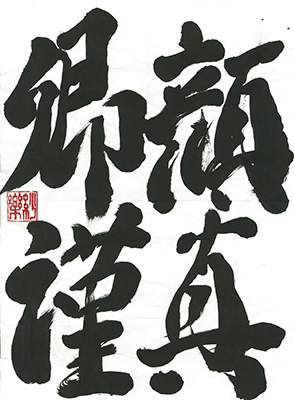 顔真
卿謹